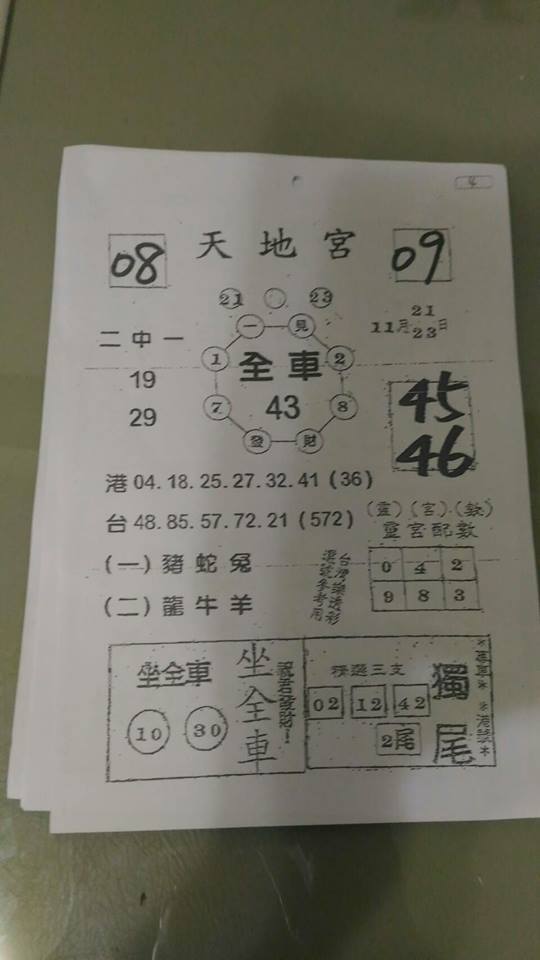 4
08 天地宮 09
21 23
11月 21 23日
一見
二中一
1 全車 2
19
7 43 8
29
發財
45
46
港 04.18.25.27.32.41 (36)
台 48.85.57.72.21 (572)
(靈) (宮) (數)
靈宮配數
(一) 豬蛇兔
(二) 龍牛羊
台灣樂透彩
0 4 2
9 8 3
坐全車
10 30
坐全車
祝君發財!
精選三支
02 12 42
2尾
獨尾
*專車* *港號*